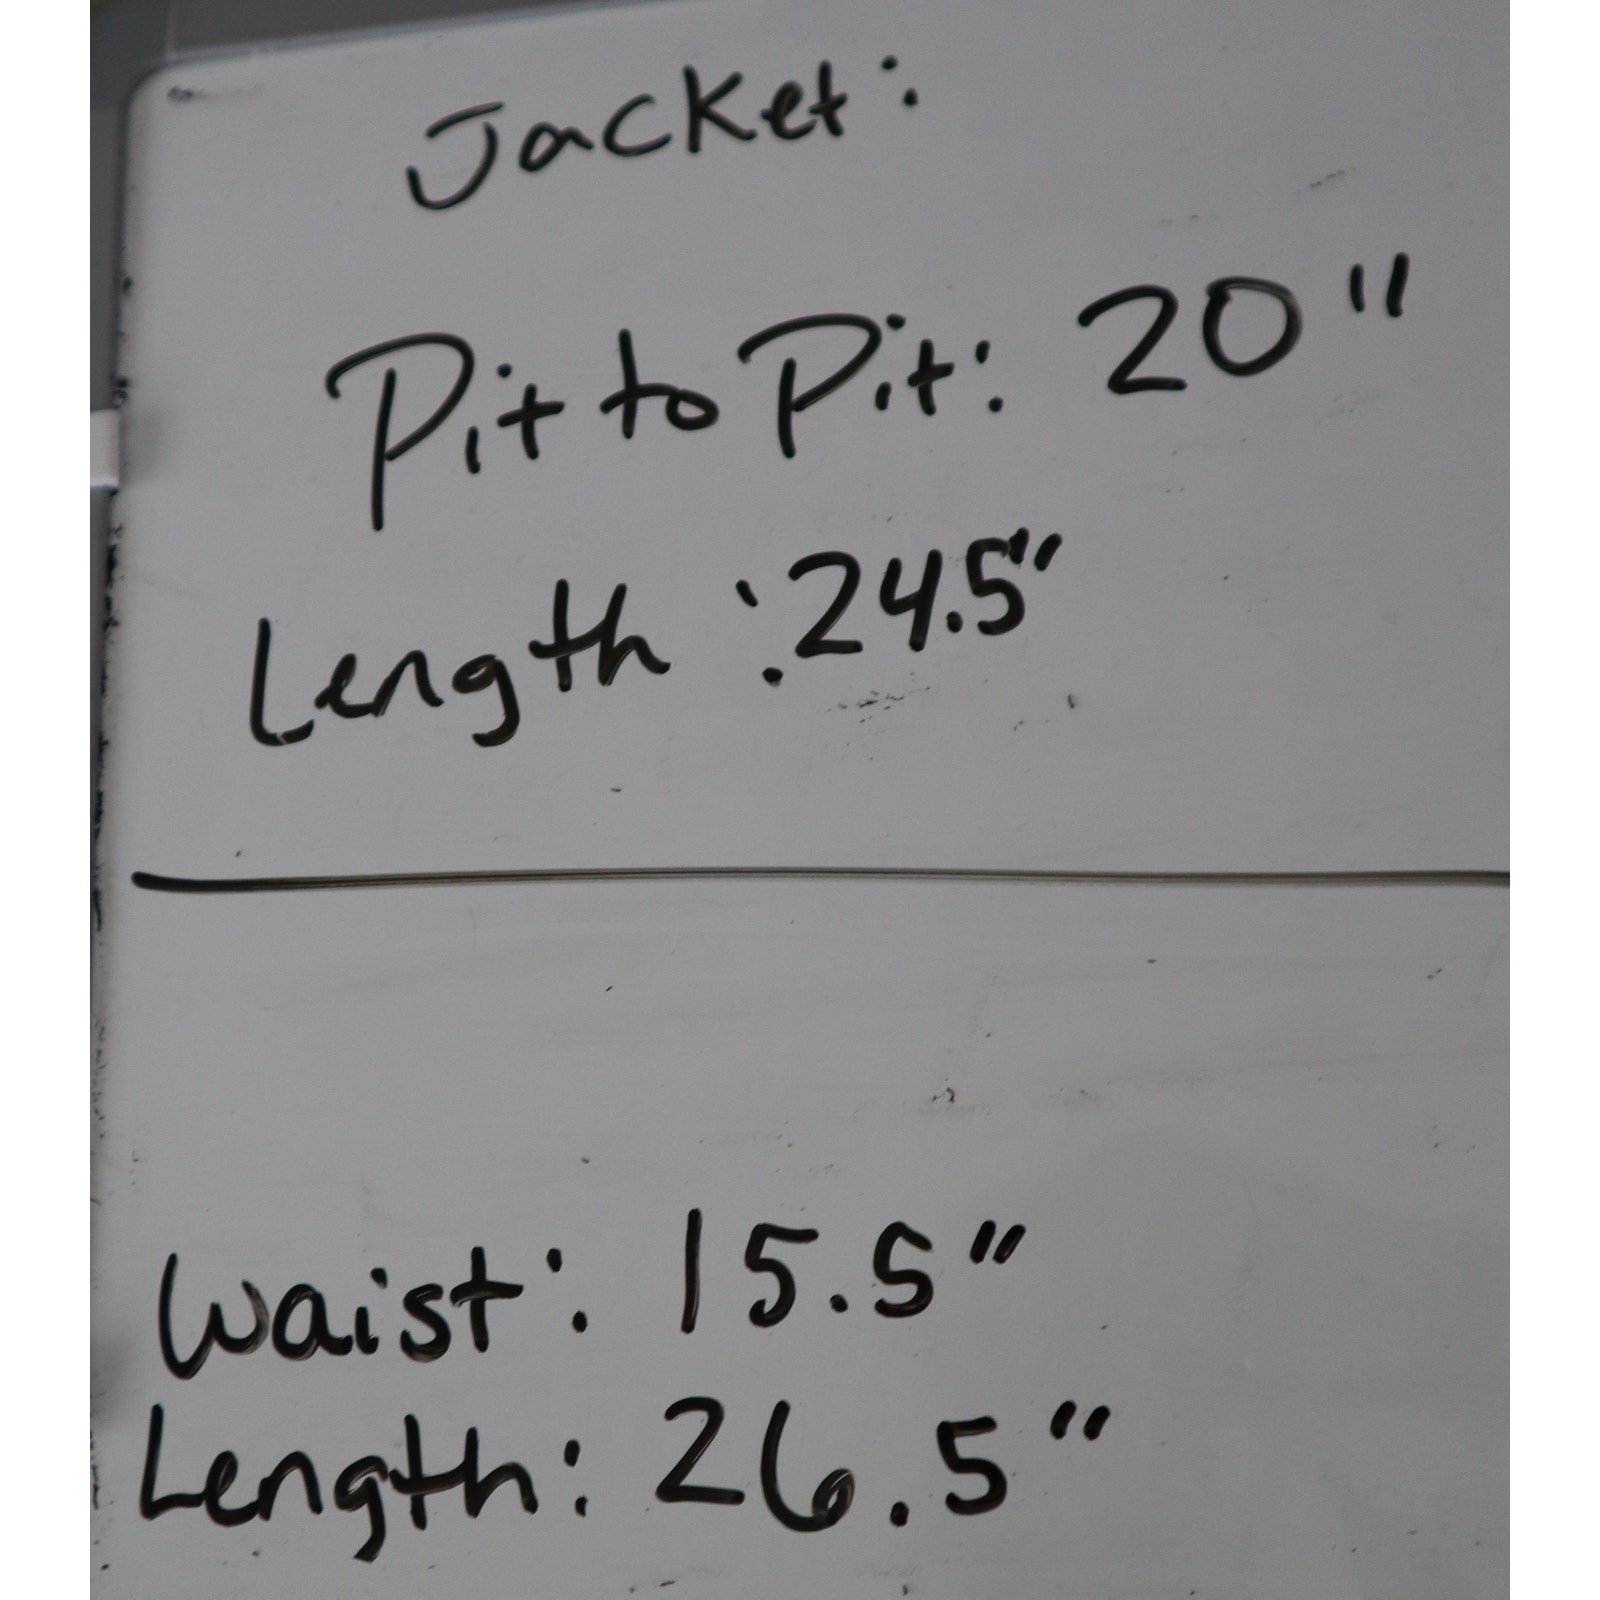 Jacket:
Pit to Pit: 20"
Length: 24.5"
Waist: 15.5"
Length: 26.5"